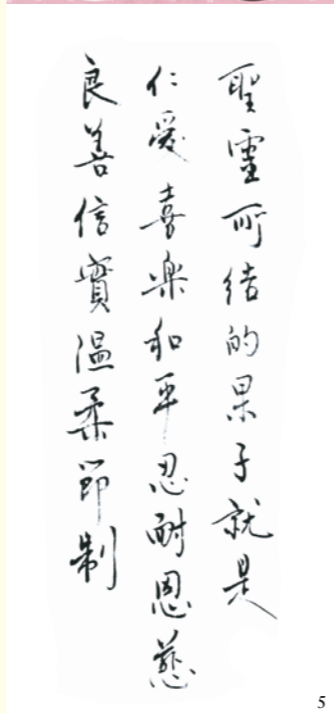 聖靈所结的果子就是
仁愛喜樂和平忍耐恩慈
良善信實温柔節制
5